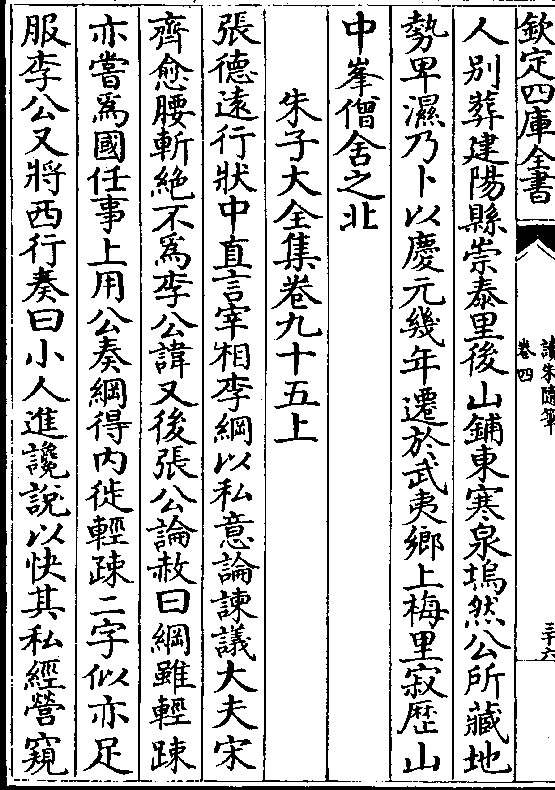 欽定四庫全書
讀朱隨筆
卷四
三十六
人別葬建陽縣崇泰里後山鋪東寒泉塢然公所藏地
勢卑濕乃卜以慶元幾年遷於武夷鄉上梅里寂歷山
中峯僧舍之北
朱子大全集卷九十五上
張德遠行狀中直言宰相李綱以私意論諫議大夫宋
齊愈腰斬絶不為李公諱又後張公論赦曰綱雖輕踈
亦嘗爲國任事上用公奏綱得內徙輕踈二字似亦足
服李公又將西行奏曰小人進讒說以快其私經營窺